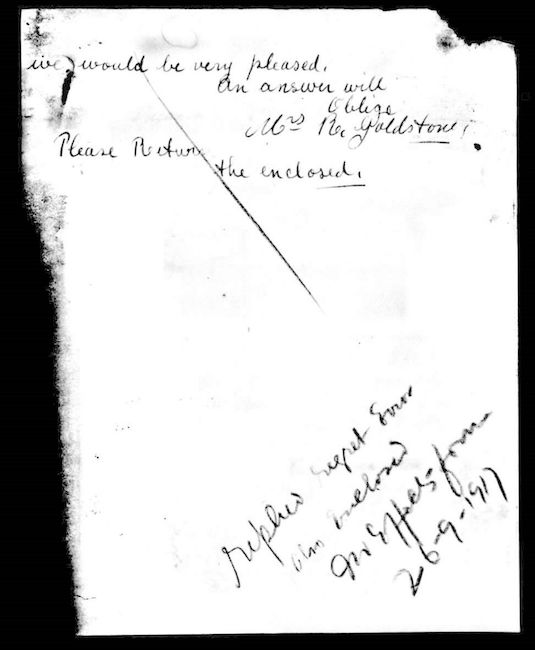 we would be very pleased.
An answer will
Oblige
Mrs R. Goldstone,
Please Return
the enclosed.
Replied regret Error
also enclosed
Effects form
26-9-1917